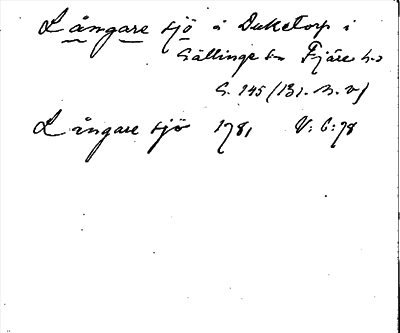 Långare sjö å Duketorp i
Gällinge sn Fjäre h.
S. 145 (131. n. v)
Långare sjö 1781 V: 6:78